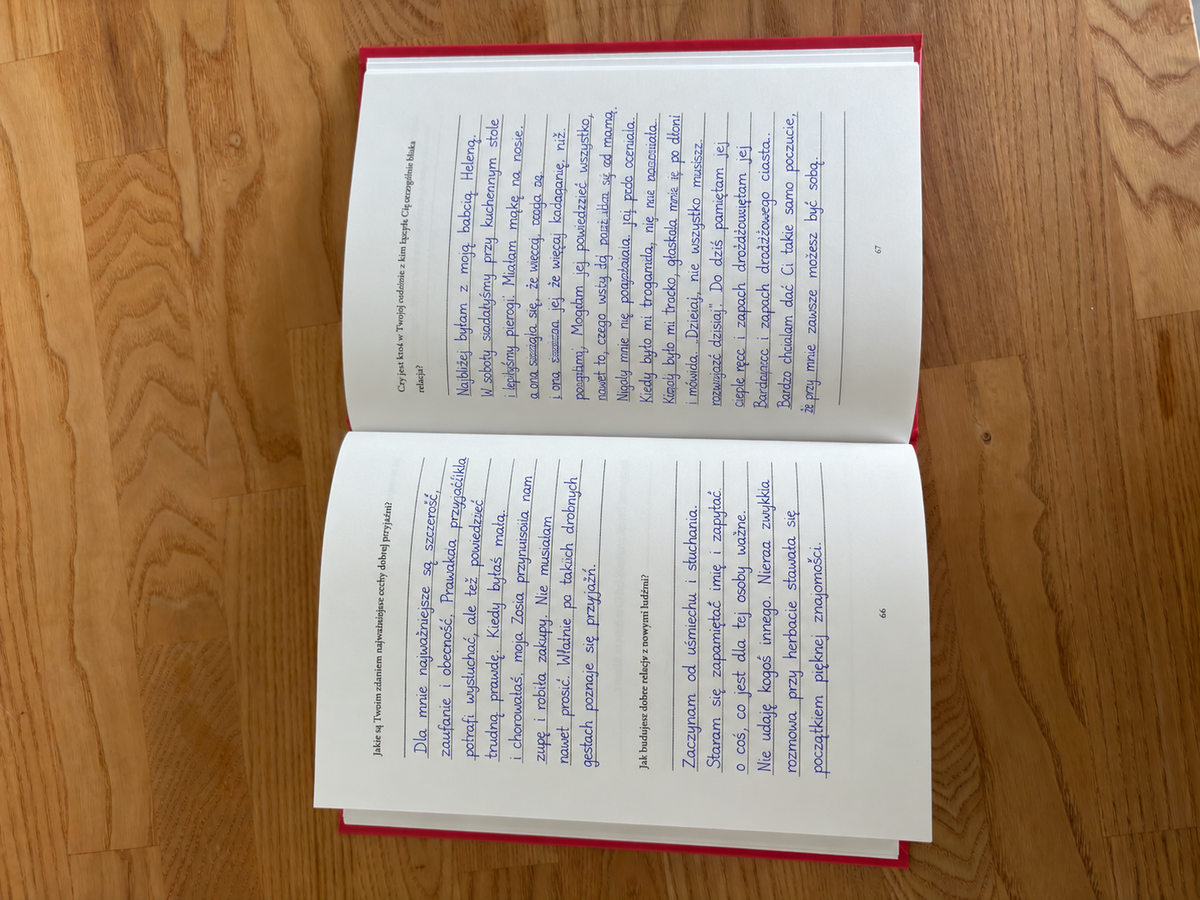 Jakie są Twoim zdaniem najważniejsze cechy dobrej przyjaźni?
Dla mnie najważniejsze są szczerość,
zaufanie i obecność. Prawakaa
potrafi wysłuchać, ale też powiedzieć
trudną prawdę. Kiedy byłaś małą
i chorowałaś, moja Zosia nam
zupę i robiła zakupy. Nie musiałam
nawet prosić. Właśnie po takiich drobnych
gestach poznaje się przyjaźń.
Jak budujesz dobre relacje z nowymi ludźmi?
Zaczynam od uśmiechu i słuchania.
Staram się zapamiętać imię i zapytać
o coś, co jest dla tej osoby ważne.
Nie udaję kogoś innego. Nieraz zwykkia
rozmowa przy herbacie stawała się
początkiem pięknej znajomości.
66
Czy jest ktoś w Twojej rodzinie z kim łączyła Cię szczególnie bliska
relacja?
Najbliżej byłam z moją babcią Heleną.
W soboty siadałyśmy przy kuchennym stole
i lepiłyśmy pierogi. Miałam mąkę na nosie,
a ona się, że
i ona jej, że więcaj niż
Mogłam jej powiedzzieć wszystko,
nawet to, czego od mamą.
Nigdy mnie nię oceniała.
Kiedy było mi nię nie
było mi głaskała po dłoni
i mówiła. nie wszystko musiszz
dzisiaj". Do dziś pamiętam jej
ciepłe ręcc i zapach jej
i zapach drodżżowego ciasta.
Bardzo chciałam dać Ci takie samo poczucie,
że przy mnie zawsze możesz być sobą.
67